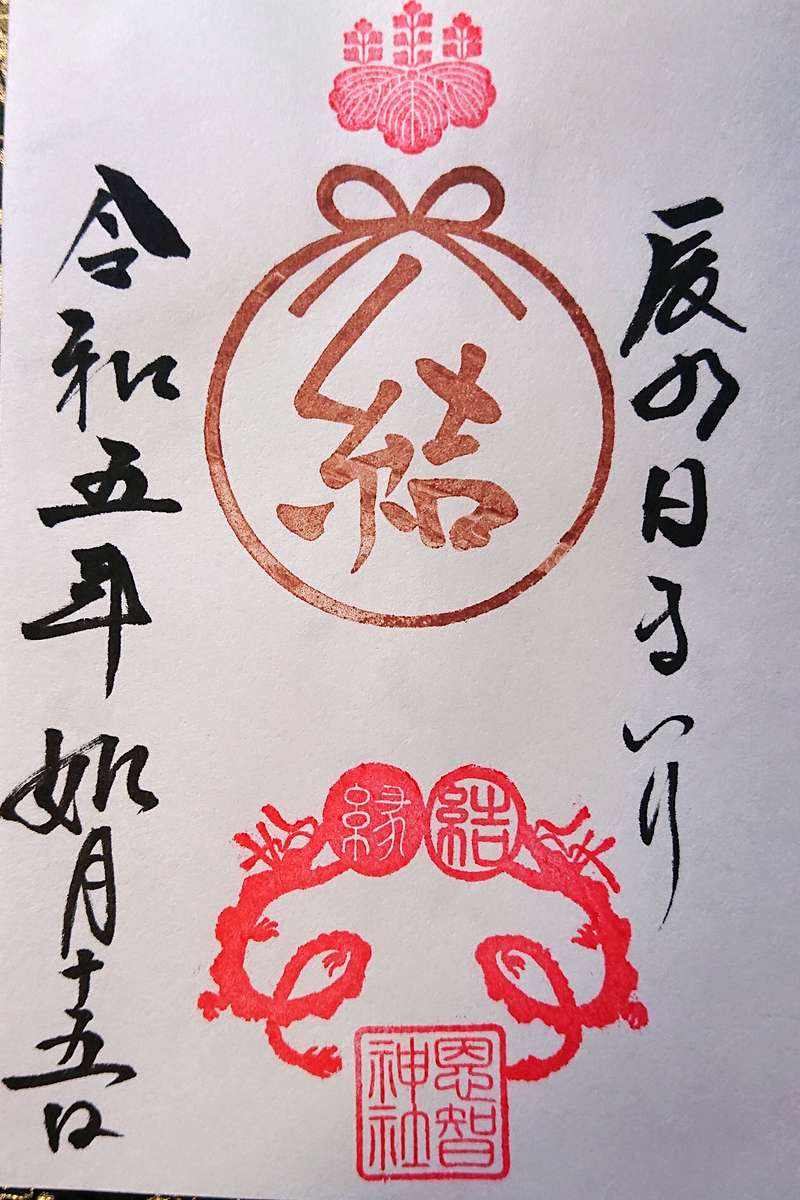 辰の日まいり
結
縁結
恩智
神社
令和五年如月十五日